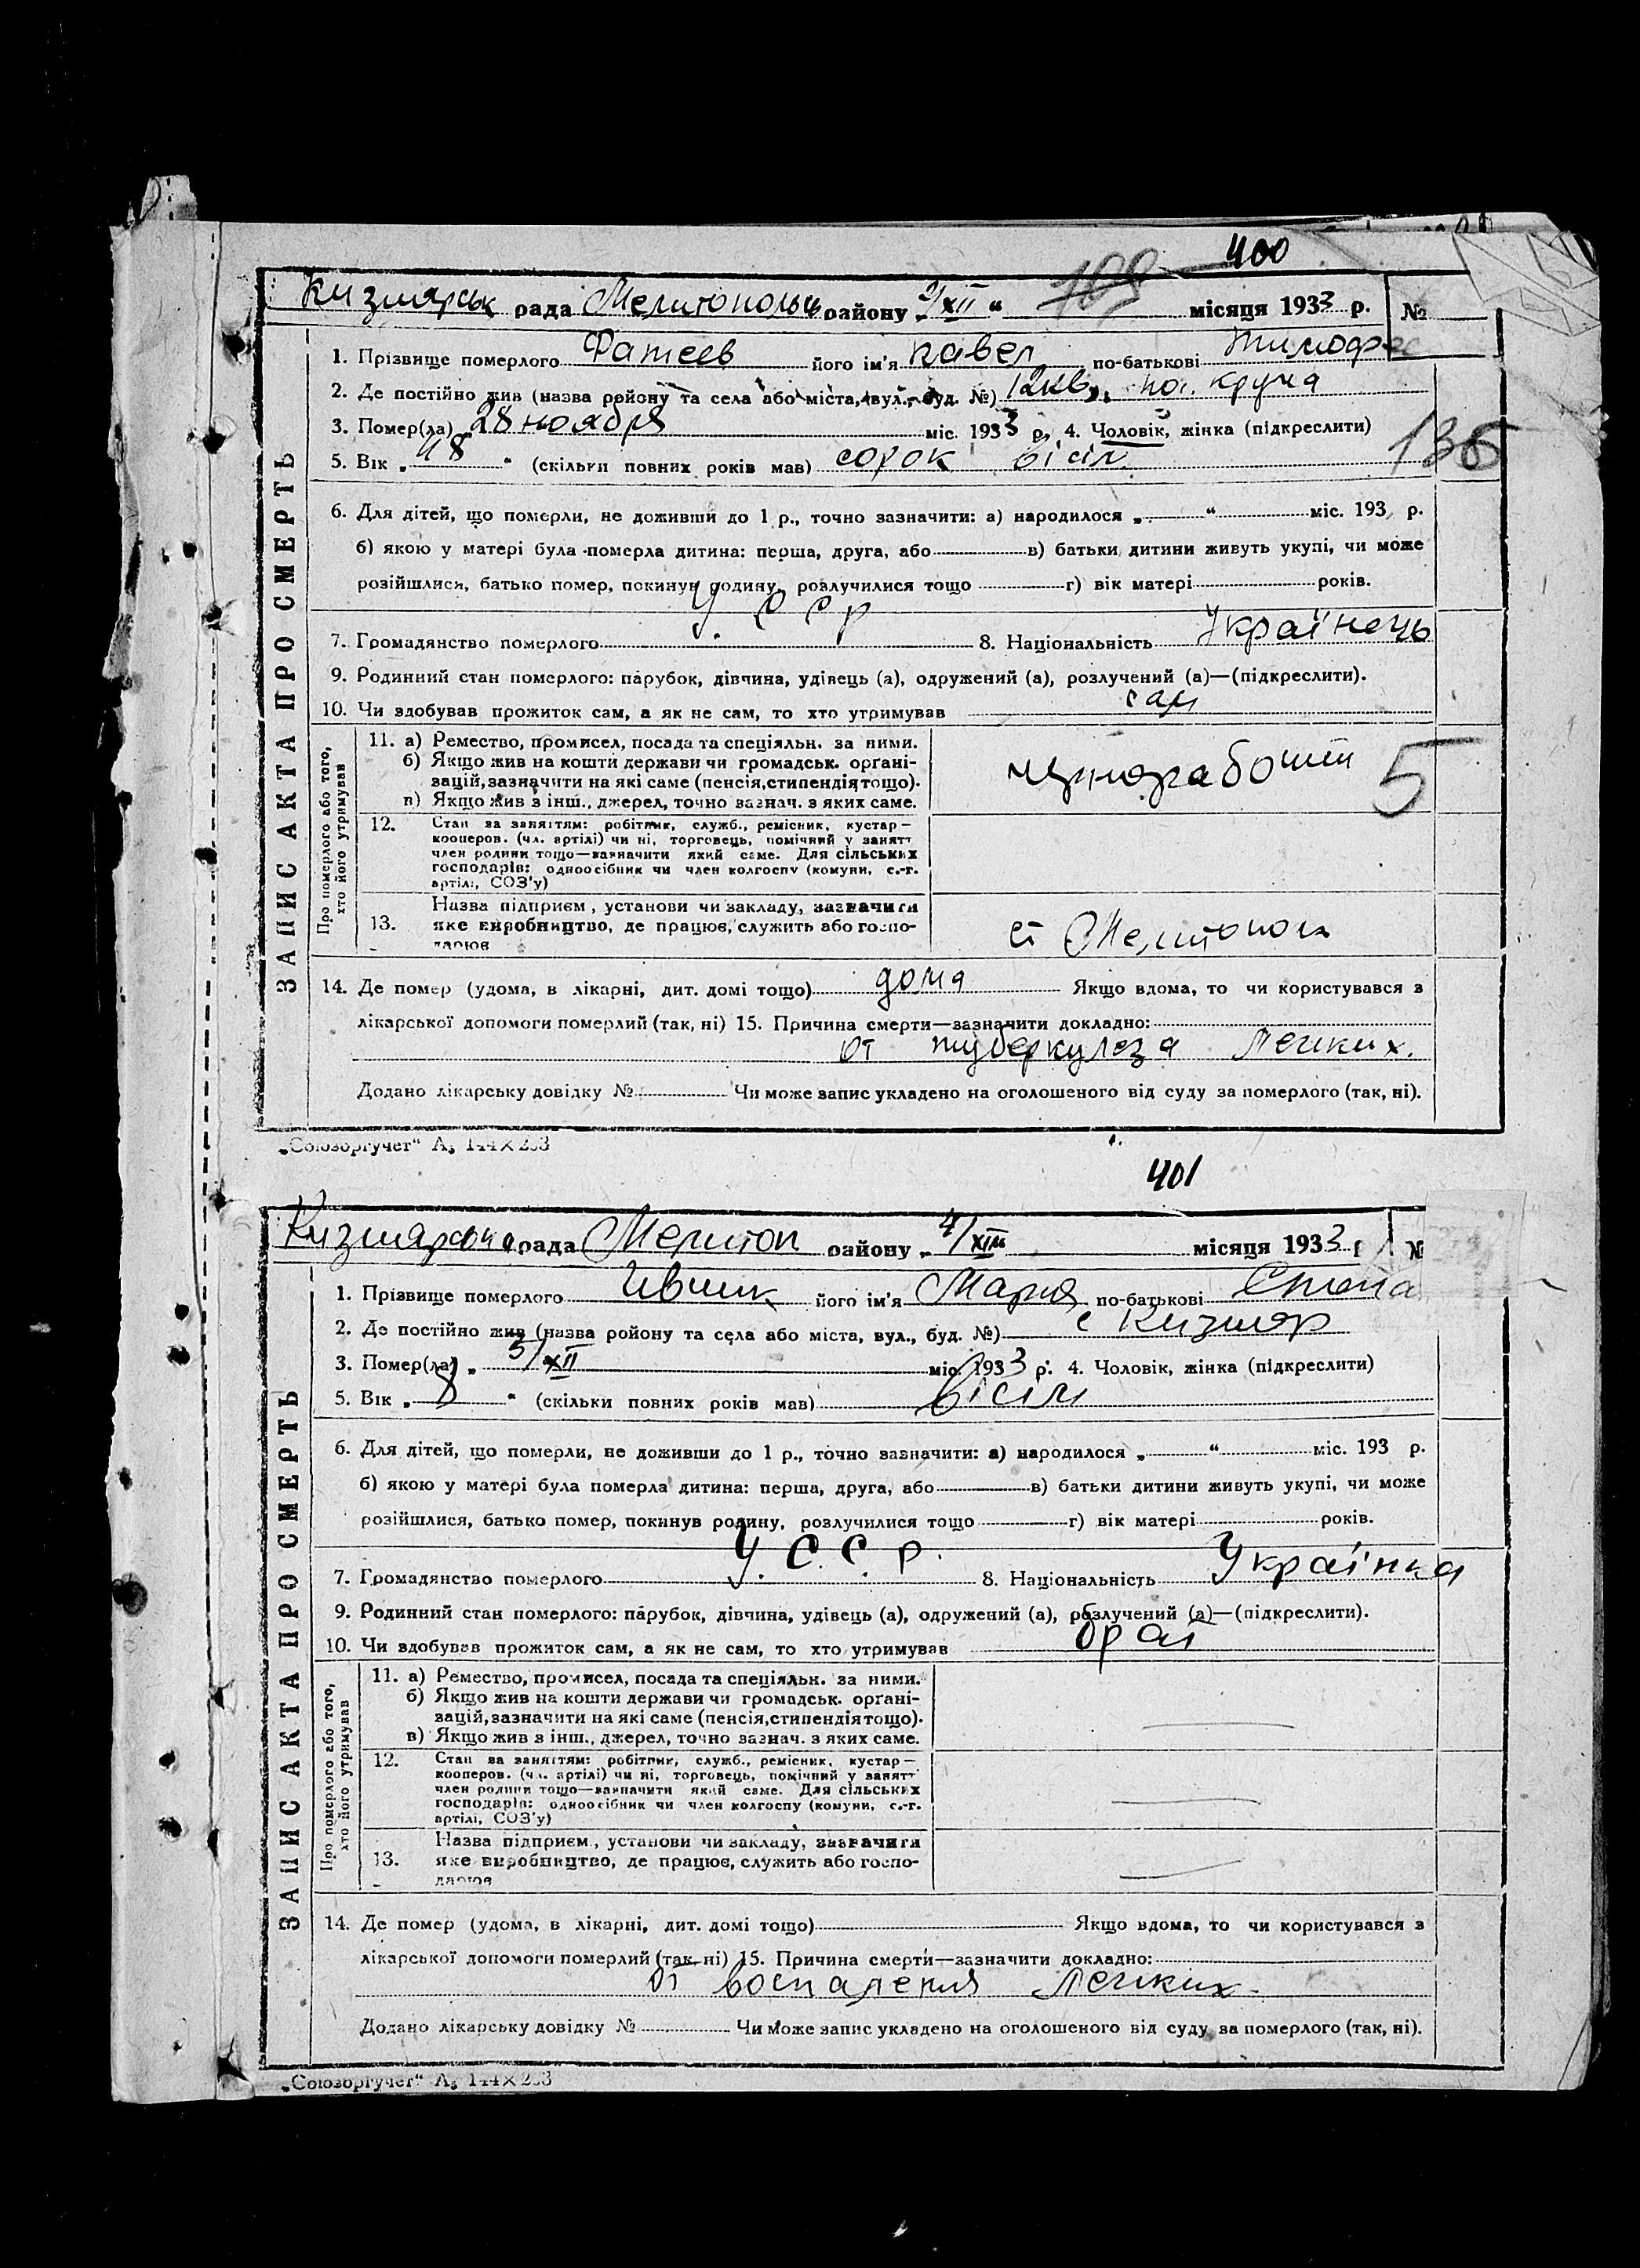 400
Кизиярськ рада Мелитопольськ району „ /XII “ 109 місяця 1933 р. №
1. Прізвище померлого Фатеев його ім'я Павел по-батькові Тимофе
2. Де постійно жив (назва району та села або міста, вул., буд. №) 12 кв, круча
3. Помер(ла) „ 28 ноября міс. 1933 р. 4. Чоловік, жінка (підкреслити)
5. Вік „ 48 “ (скільки повних років мав) сорок вісім 136
6. Для дітей, що померли, не доживши до 1 р., точно зазначити: а) народилося „ “ міс. 193 р.
б) якою у матері була померла дитина: перша, друга, або в) батьки дитини живуть укупі, чи може
розійшлися, батько помер, покинув родину, розлучилися тощо г) вік матері років.
7. Громадянство померлого У. С С Р 8. Національність Українець
9. Родинний стан померлого: парубок, дівчина, удівець (а), одружений (а), розлучений (а)—(підкреслити).
10. Чи здобував прожиток сам, а як не сам, то хто утримував сам
ЗАПИС АКТА ПРО СМЕРТЬ
Про померлого або того, хто його утримував
11. а) Ремество, промисел, посада та спеціяльн. за ними.
б) Якщо жив на кошти держави чи громадськ. органі-
зацій, зазначити на які саме (пенсія, стипендія тощо).
в) Якщо жив з інш., джерел, точно зазнач. з яких саме.
чорнорабочий 5
12. Стан за заняттям: робітник, служб., ремісник, кустар—
кооперов. (чл. артілі) чи ні, торговець, помічний у занятт
член родини тощо—зазначити який саме. Для сільських
господарів: одноосібник чи член колгоспу (комуни, с.-г.
артілі, СОЗ'у)
13. Назва підприєм., установи чи закладу, зазначити
яке виробництво, де працює, служить або госпо-
дарює
ст Мелитополь
14. Де помер (удома, в лікарні, дит. домі тощо) дома Якщо вдома, то чи користувався з
лікарської допомоги померлий (так, ні) 15. Причина смерти—зазначити докладно:
от туберкулеза легких.
Додано лікарську довідку № Чи може запис укладено на оголошеного від суду за померлого (так, ні).
„Союзоргучет“ А₅ 144×203
401
Кизиярська рада Мелитоп району „ 4/XII місяця 1933 р №
1. Прізвище померлого Ивчик його ім'я Мария по-батькові Степа
2. Де постійно жив (назва району та села або міста, вул., буд. №) с Кизияр
3. Помер(ла) „ 3/XII міс. 1933 р. 4. Чоловік, жінка (підкреслити)
5. Вік „ 8 “ (скільки повних років мав) вісім
6. Для дітей, що померли, не доживши до 1 р., точно зазначити: а) народилося „ “ міс. 193 р.
б) якою у матері була померла дитина: перша, друга, або в) батьки дитини живуть укупі, чи може
розійшлися, батько помер, покинув родину, розлучилися тощо г) вік матері років.
7. Громадянство померлого У. С. С. Р. 8. Національність Українка
9. Родинний стан померлого: парубок, дівчина, удівець (а), одружений (а), розлучений (а)—(підкреслити).
10. Чи здобував прожиток сам, а як не сам, то хто утримував брат
ЗАПИС АКТА ПРО СМЕРТЬ
Про померлого або того, хто його утримував
11. а) Ремество, промисел, посада та спеціяльн. за ними.
б) Якщо жив на кошти держави чи громадськ. органі-
зацій, зазначити на які саме (пенсія, стипендія тощо).
в) Якщо жив з інш., джерел, точно зазнач. з яких саме.
12. Стан за заняттям: робітник, служб., ремісник, кустар—
кооперов. (чл. артілі) чи ні, торговець, помічний у занятт
член родини тощо—зазначити який саме. Для сільських
господарів: одноосібник чи член колгоспу (комуни, с.-г.
артілі, СОЗ'у)
13. Назва підприєм., установи чи закладу, зазначити
яке виробництво, де працює, служить або госпо-
дарює
14. Де помер (удома, в лікарні, дит. домі тощо) Якщо вдома, то чи користувався з
лікарської допомоги померлий (так, ні) 15. Причина смерти—зазначити докладно:
от воспаления легких.
Додано лікарську довідку № Чи може запис укладено на оголошеного від суду за померлого (так, ні).
„Союзоргучет“ А₅ 144×203